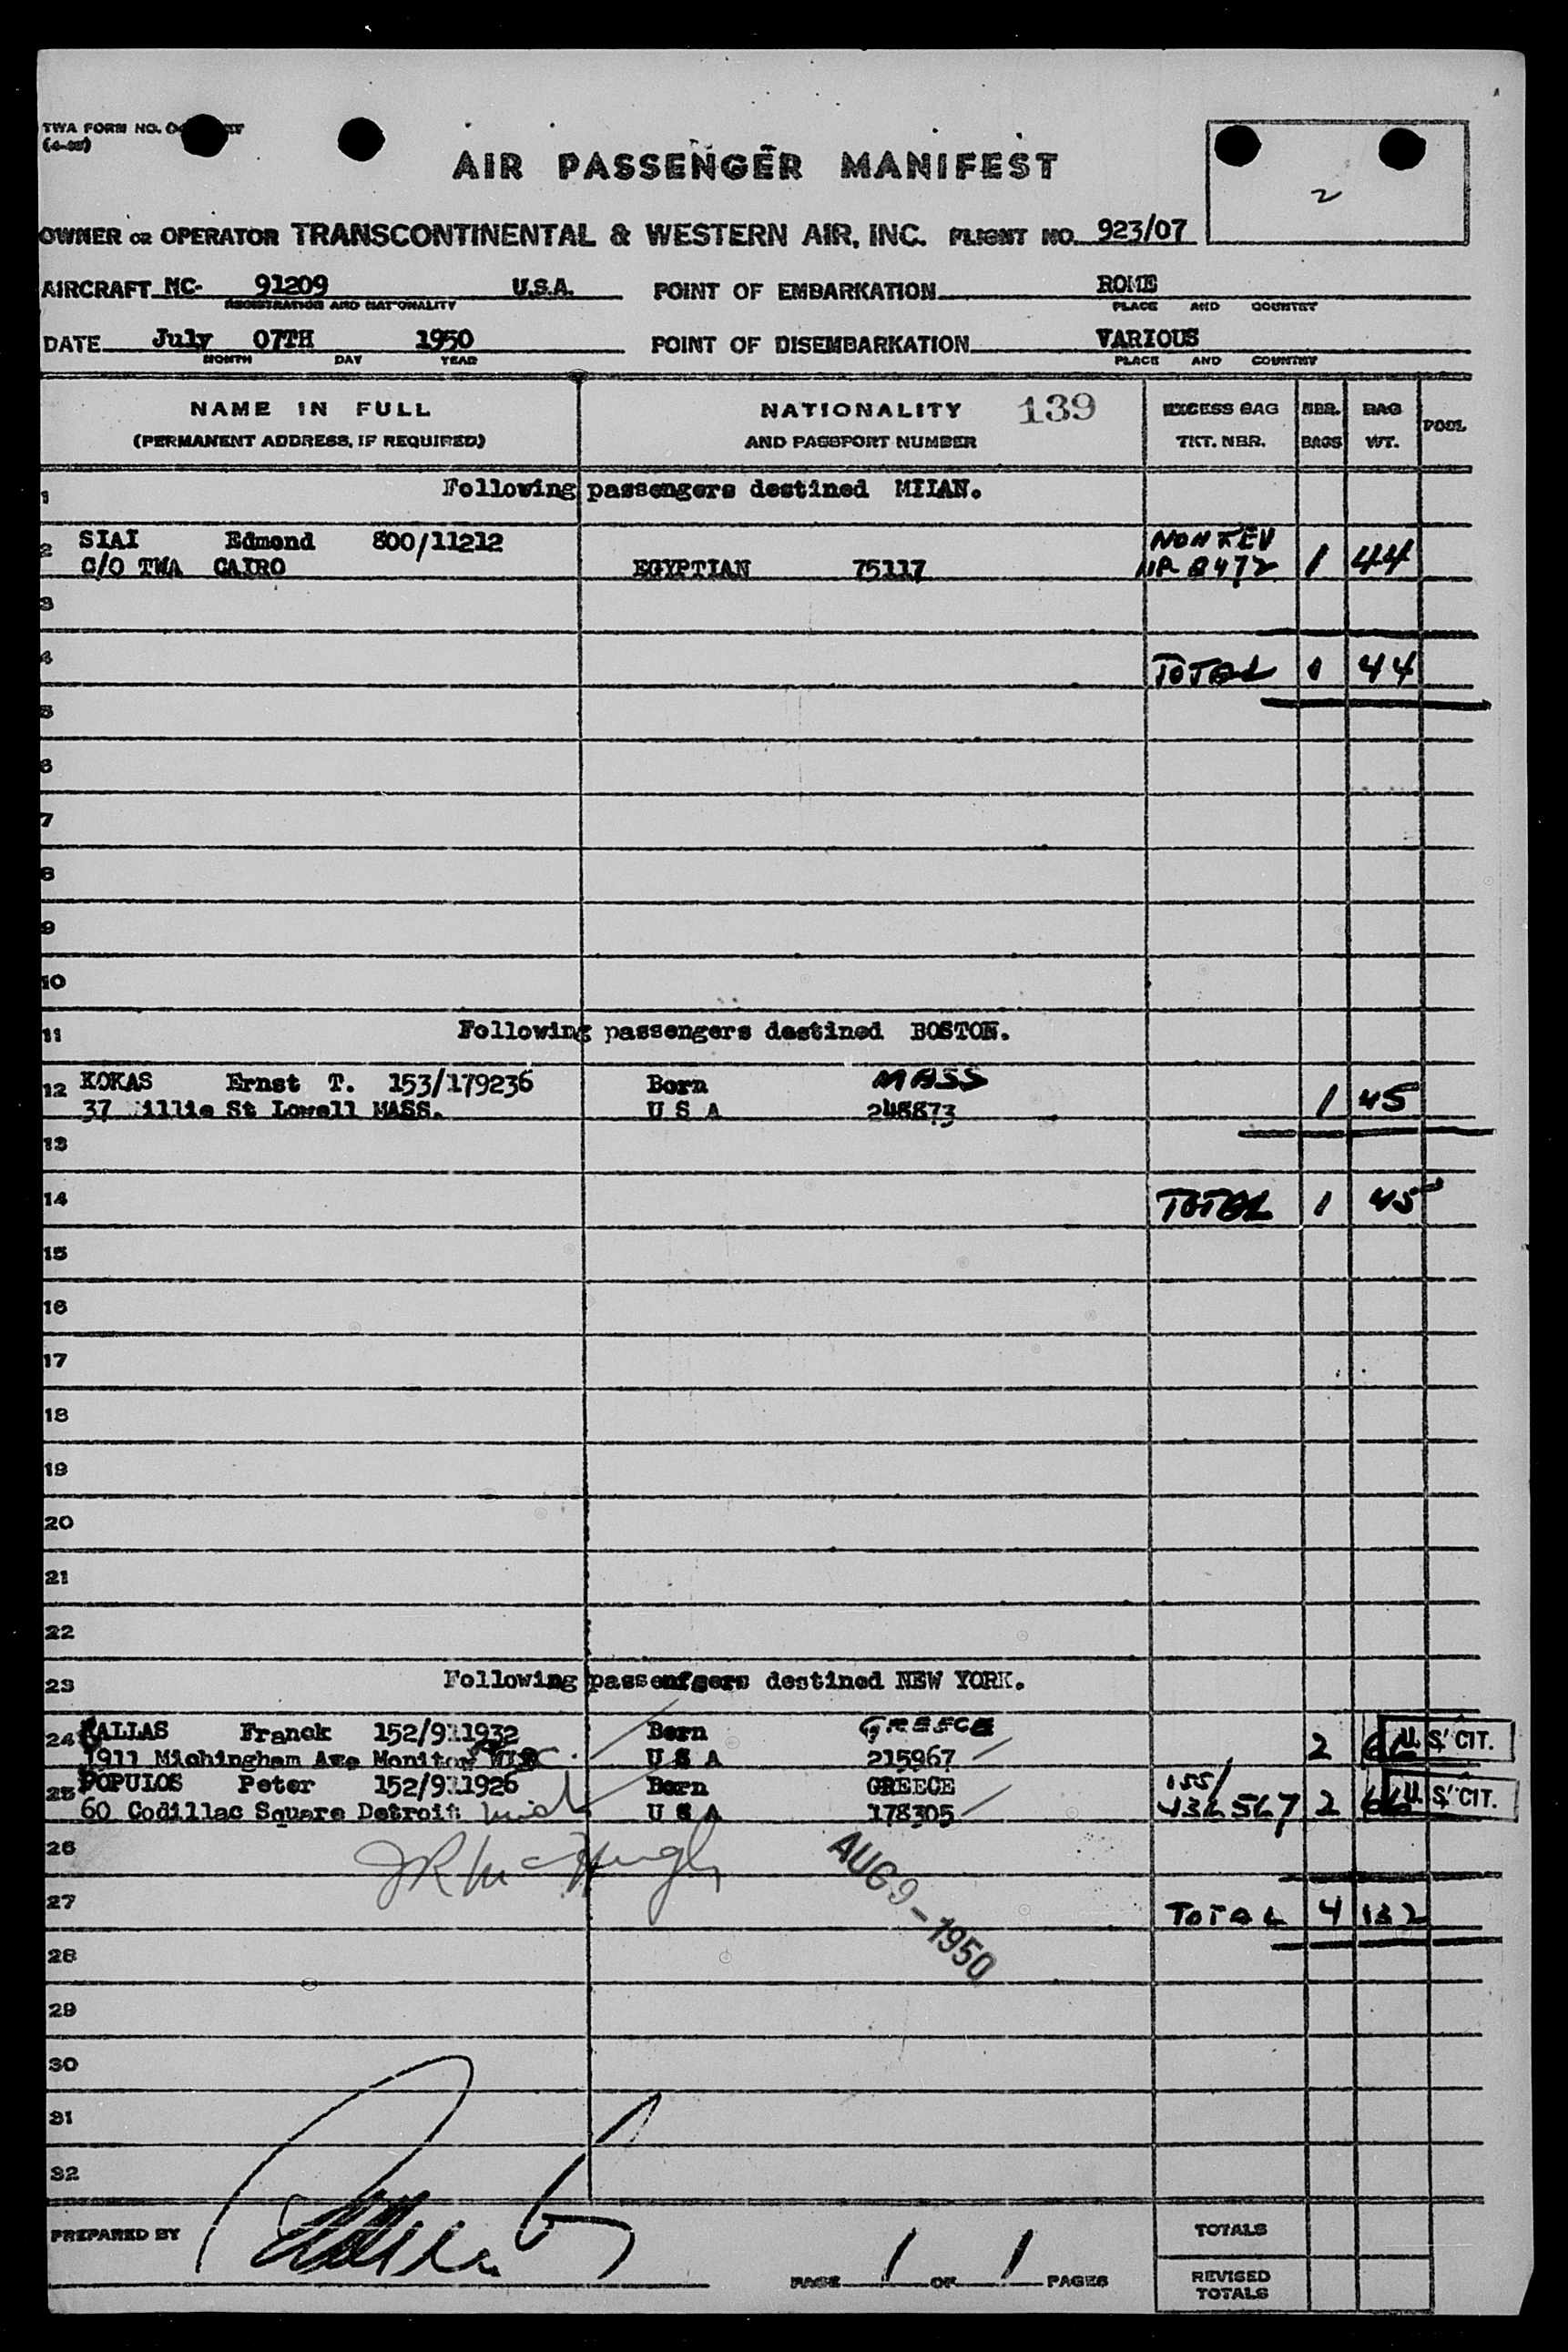 TWA FORM NO.
AIR PASSENGER MANIFEST
2
OWNER OR OPERATOR TRANSCONTINENTAL & WESTERN AIR, INC. FLIGHT NO. 923/07
AIRCRAFT NC- 91209 U.S.A. POINT OF EMBARKATION ROME
REGISTRATION AND NATIONALITY PLACE AND COUNTRY
DATE July 07TH 1950 POINT OF DISEMBARKATION VARIOUS
MONTH DAY YEAR PLACE AND COUNTRY
NAME IN FULL NATIONALITY 139 EXCESS BAG NBR. BAG POOL
(PERMANENT ADDRESS, IF REQUIRED) AND PASSPORT NUMBER TKT. NBR. BAGS WT.
1 Following passengers destined MILAN.
2 SIAI Edmond 800/11212 NON REV
C/O TWA CAIRO EGYPTIAN 75117 8472 1 44
3
4 TOTAL 1 44
5
6
7
8
9
10
11 Following passengers destined BOSTON.
12 KOKAS Ernst T. 153/179236 Born MASS
37 illie St Lowell MASS. U S A 248873 1 45
13
14 TOTAL 1 45
15
16
17
18
19
20
21
22
23 Following passenfgers destined NEW YORK.
24 KALLAS Franck 152/911932 Born GREECE
1911 Michingham Ave Monitor U S A 215967 2 U.S. CIT.
25 POPULOS Peter 152/911926 Born GREECE 155/
60 Codillac Square Detroit Mich U S A 178305 432567 2 66 U.S. CIT.
26 JR McHugh
AUG 9 - 1950
27 TOTAL 4 132
28
29
30
31
32
PREPARED BY TOTALS
PAGE 1 OF 1 PAGES REVISED
TOTALS